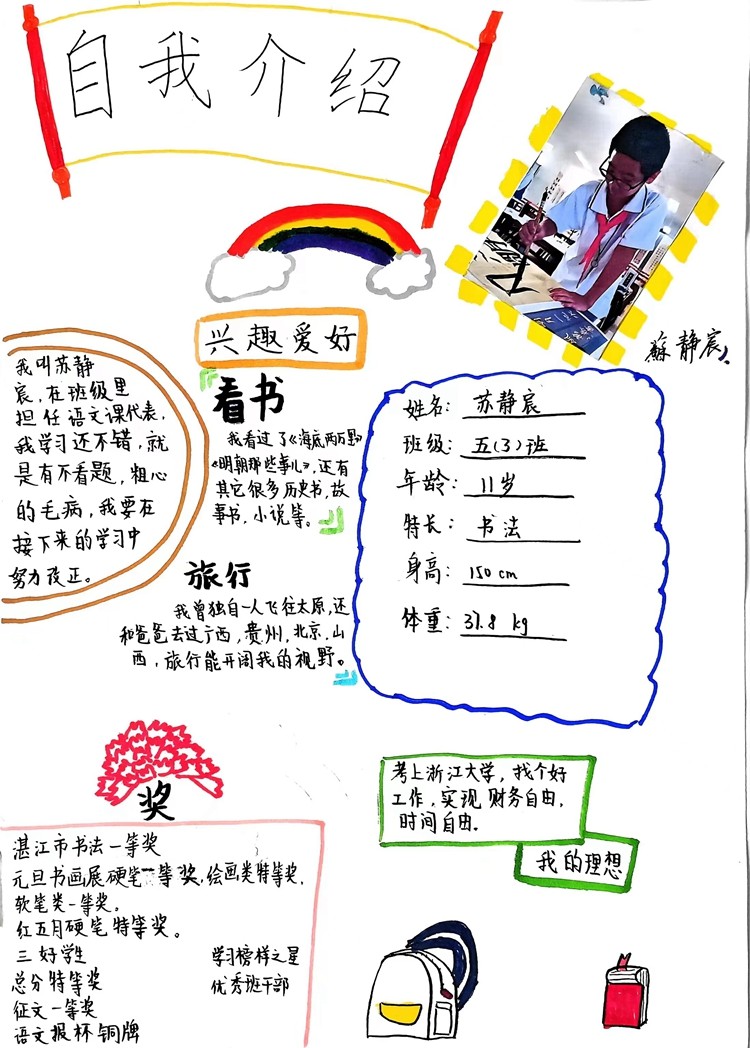 自我介绍
蘇静宸
兴趣爱好
我叫苏静
宸，在班级里
担任语文课代表，
我学习还不错，就
是有不看题，粗心
的毛病，我要在
接下来的学习中
努力改正。
看书
我看过了《海底两万里》
《明朝那些事儿》，还有
其它很多历史书，故
事书，小说等。
旅行
我曾独自一人飞往太原，还
和爸爸去过广西，贵州，北京，山
西，旅行能开阔我的视野。
姓名：苏静宸
班级：五（3）班
年龄：11岁
特长：书法
身高：150cm
体重：31.8 kg
奖
湛江市书法一等奖
元旦书画展硬笔一等奖，绘画类特等奖，
软笔类一等奖。
红五月硬笔特等奖。
三好学生
总分特等奖
征文一等奖
语文报杯铜牌
学习榜样之星
优秀班干部
考上浙江大学，找个好
工作，实现财务自由，
时间自由。
我的理想